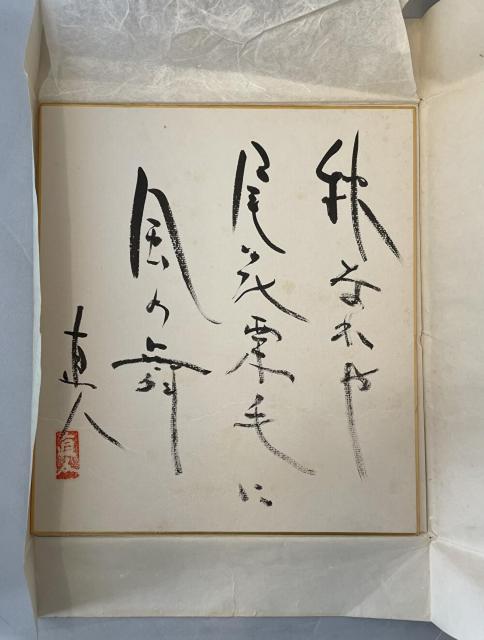 秋なれや
尾花栗毛に
風の舞
直人
直人